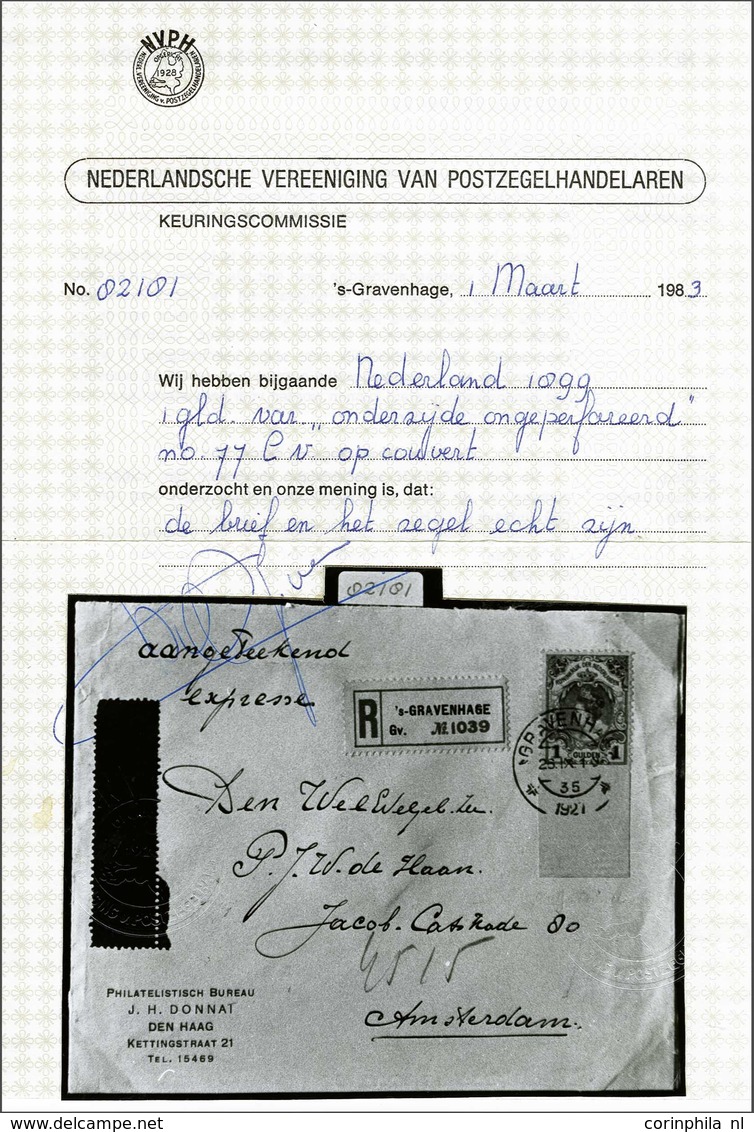 NVPH
OPGERICHT
1928
NEDERL. VEREENIGING v. POSTZEGELHANDELAREN
NEDERLANDSCHE VEREENIGING VAN POSTZEGELHANDELAREN
KEURINGSCOMMISSIE
No. 02101 's-Gravenhage, 1 Maart 1983
Wij hebben bijgaande Nederland 1899
1 gld. var „onderzijde ongeperforeerd"
no. 77 C v. op couvert
onderzocht en onze mening is, dat:
de brief en het zegel echt zijn
02101
aangeteekend
expresse
R 's-GRAVENHAGE
Gv. No. 1039
1 GULDEN 1
'S GRAVENHAGE
35
1921
Den WelEdelgeb. Hr.
P. J. W. de Haan.
Jacob. Catskade 80
4515
Amsterdam.
PHILATELISTISCH BUREAU
J. H. DONNAT
DEN HAAG
KETTINGSTRAAT 21
TEL. 15469
corinphila nl